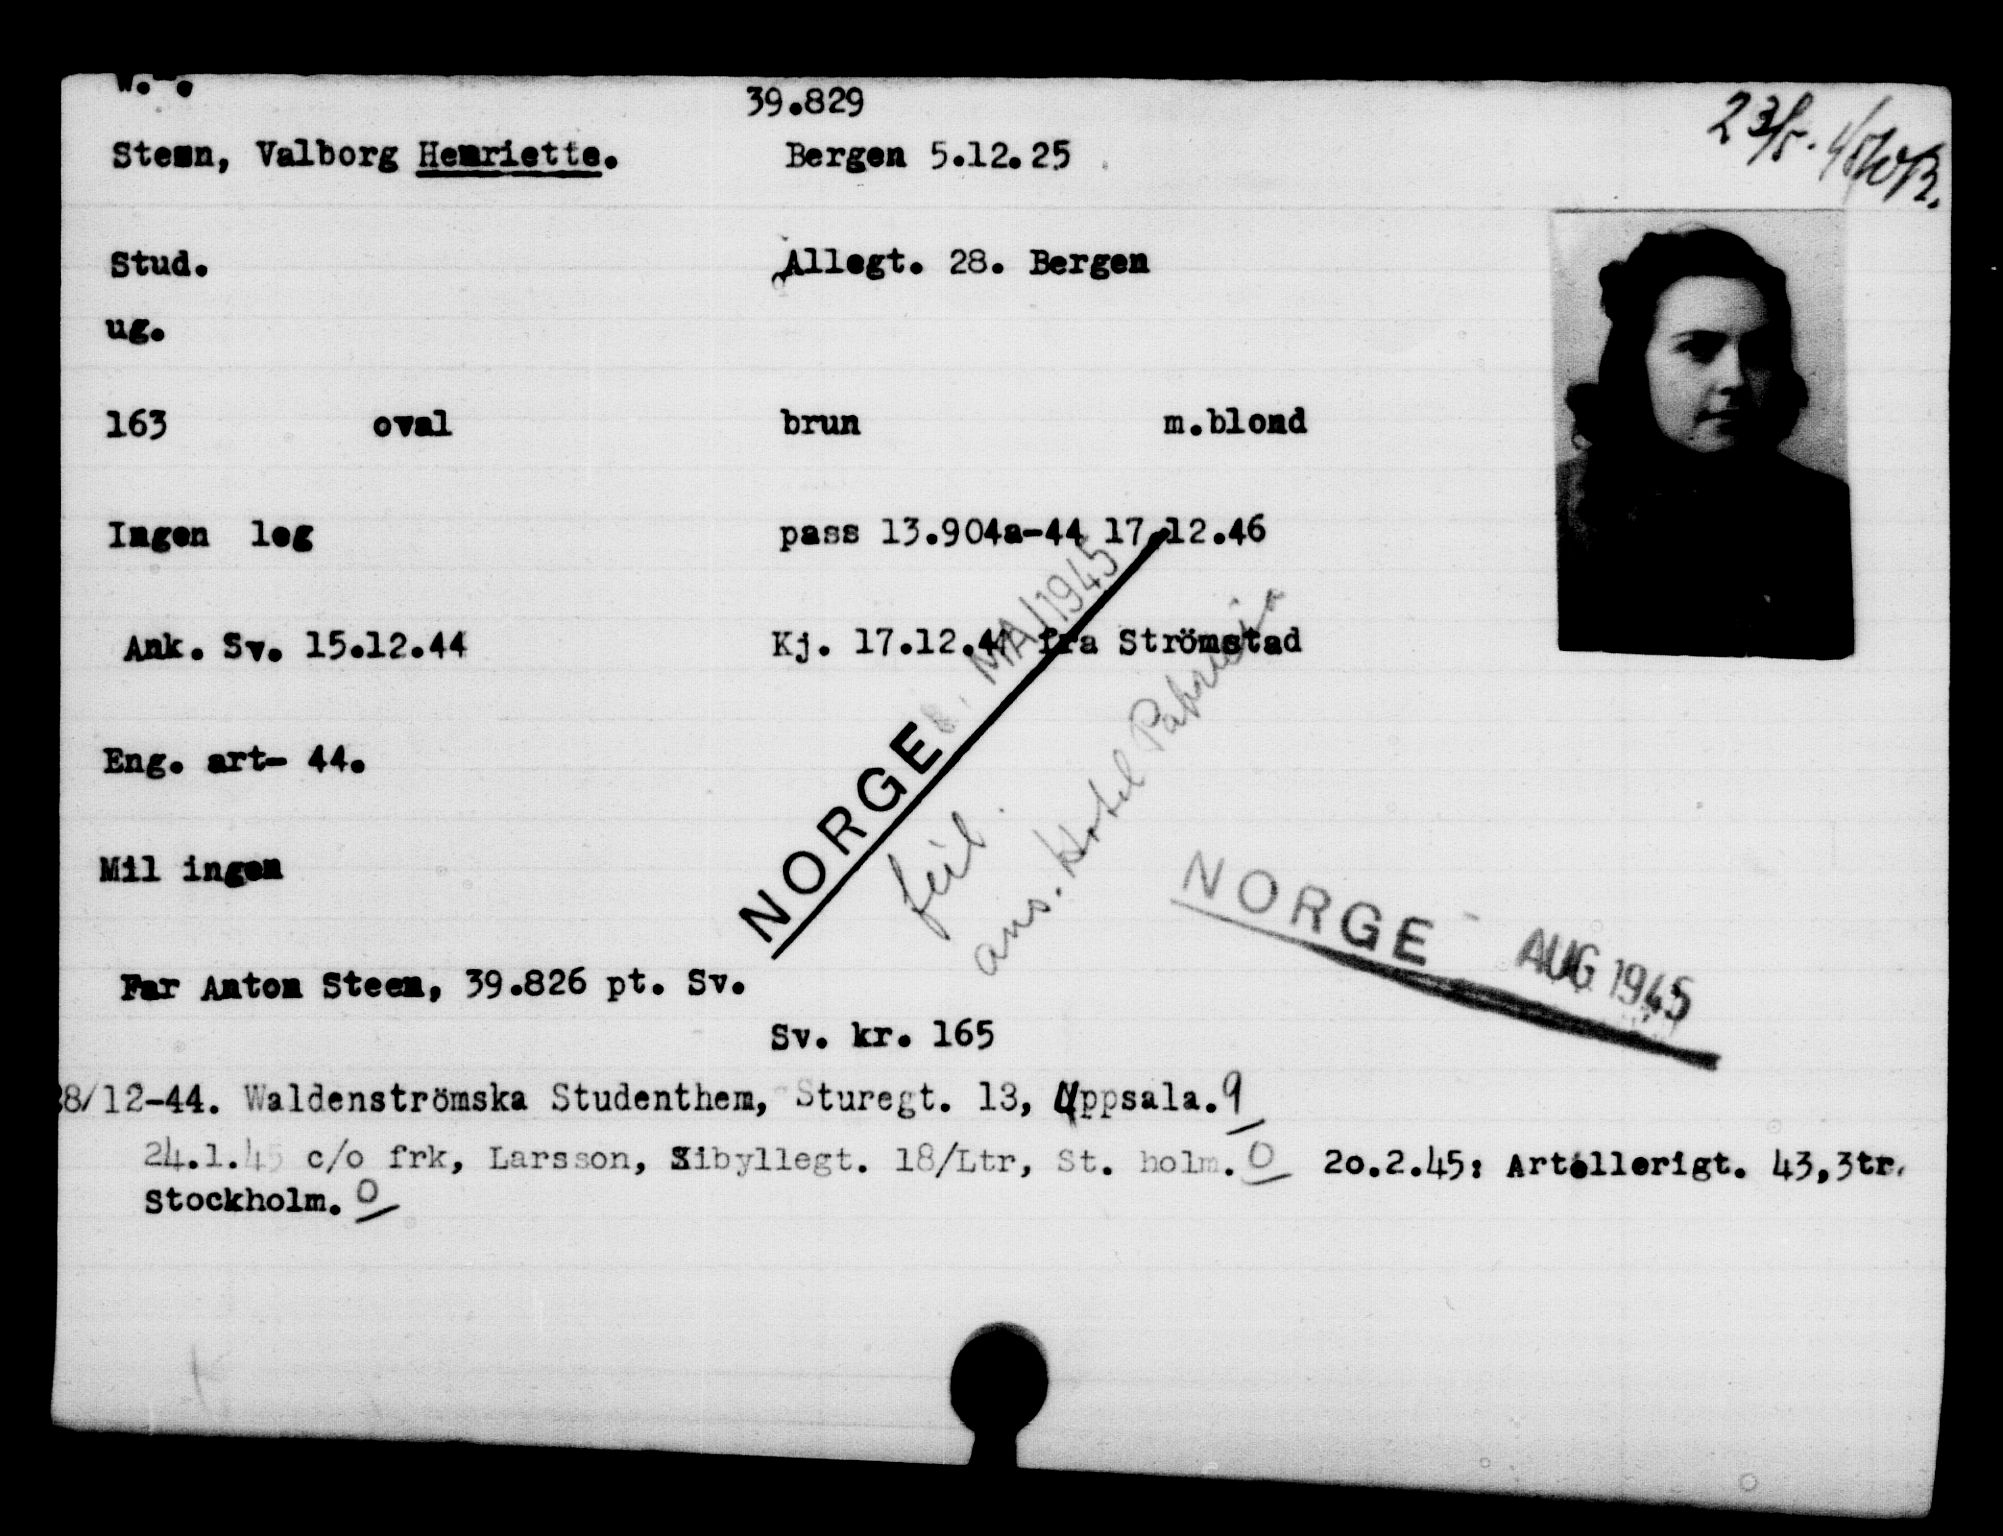 39.829
23/5.
Steen, Valborg Henriette. Bergen 5.12.25
Stud. Allegt. 28. Bergen
ug.
163 oval brun m.blond
Ingen leg pass 13.904a-44 17.12.46
Ank. Sv. 15.12.44 Kj. 17.12.44 fra Strömstad
Eng. art- 44.
Mil ingen
NORGE MAI 1945
feil.
ans. Hotel Patricia
NORGE - AUG 1945
Far Anton Steen, 39.826 pt. Sv.
Sv. kr. 165
28/12-44. Waldenströmska Studenthem, Sturegt. 13, Uppsala.
24.1.45 c/o frk, Larsson, Sibyllegt. 18/Ltr, St. holm. 20.2.45: Artillerigt. 43,3tr.
Stockholm.